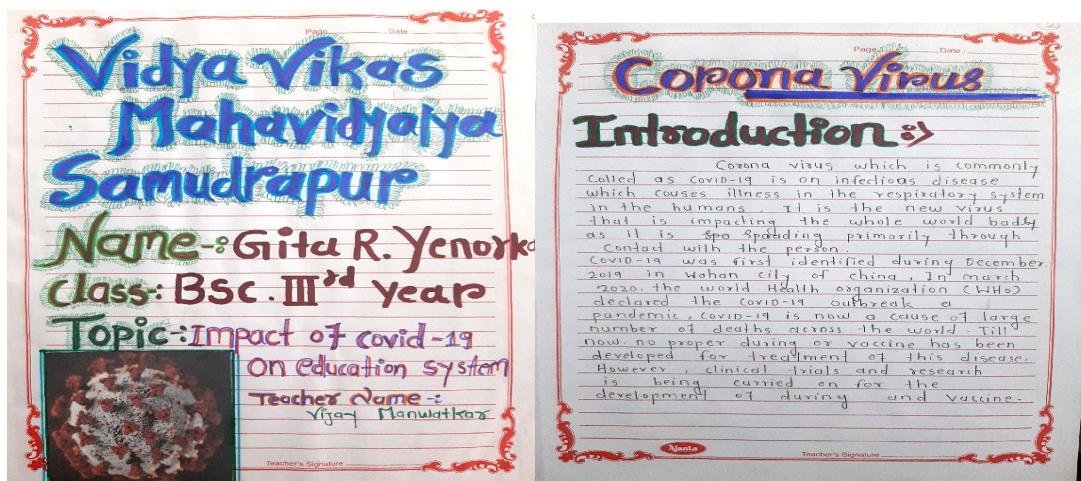 Page Date :
Vidya Vikas
Mahavidyalya
Samudrapur
Name-: Gita R. Yenorka
Class: BSC. IIIrd year
Topic: Impact of covid-19
On education system
Teacher Name -:
Vijay Manwatkar
Teacher's Signature
Page Date :
Corona Virus
Introduction :
Corona virus which is commonly
Called as COVID-19 is on infectioas disease
which couses illness in the respiratory System
in the humans. It is the new virus
that is impacting the whole world badly
as it is spo Spading primarily through
Contact with the person.
COVID-19 was first identified during December.
2019 in Wahan city of china, In march
2020. the world Health organization (WHO)
declared the COVID-19 outbreak a
pandemic, COVID-19 is now a cause of large
number of deaths across the world. Till
now. no proper during or vaccine has been
developed for treatment of this disease.
However, clinical trials and research
is being curried on for the
development of during and vaccine.
Ajanta
Teacher's Signature